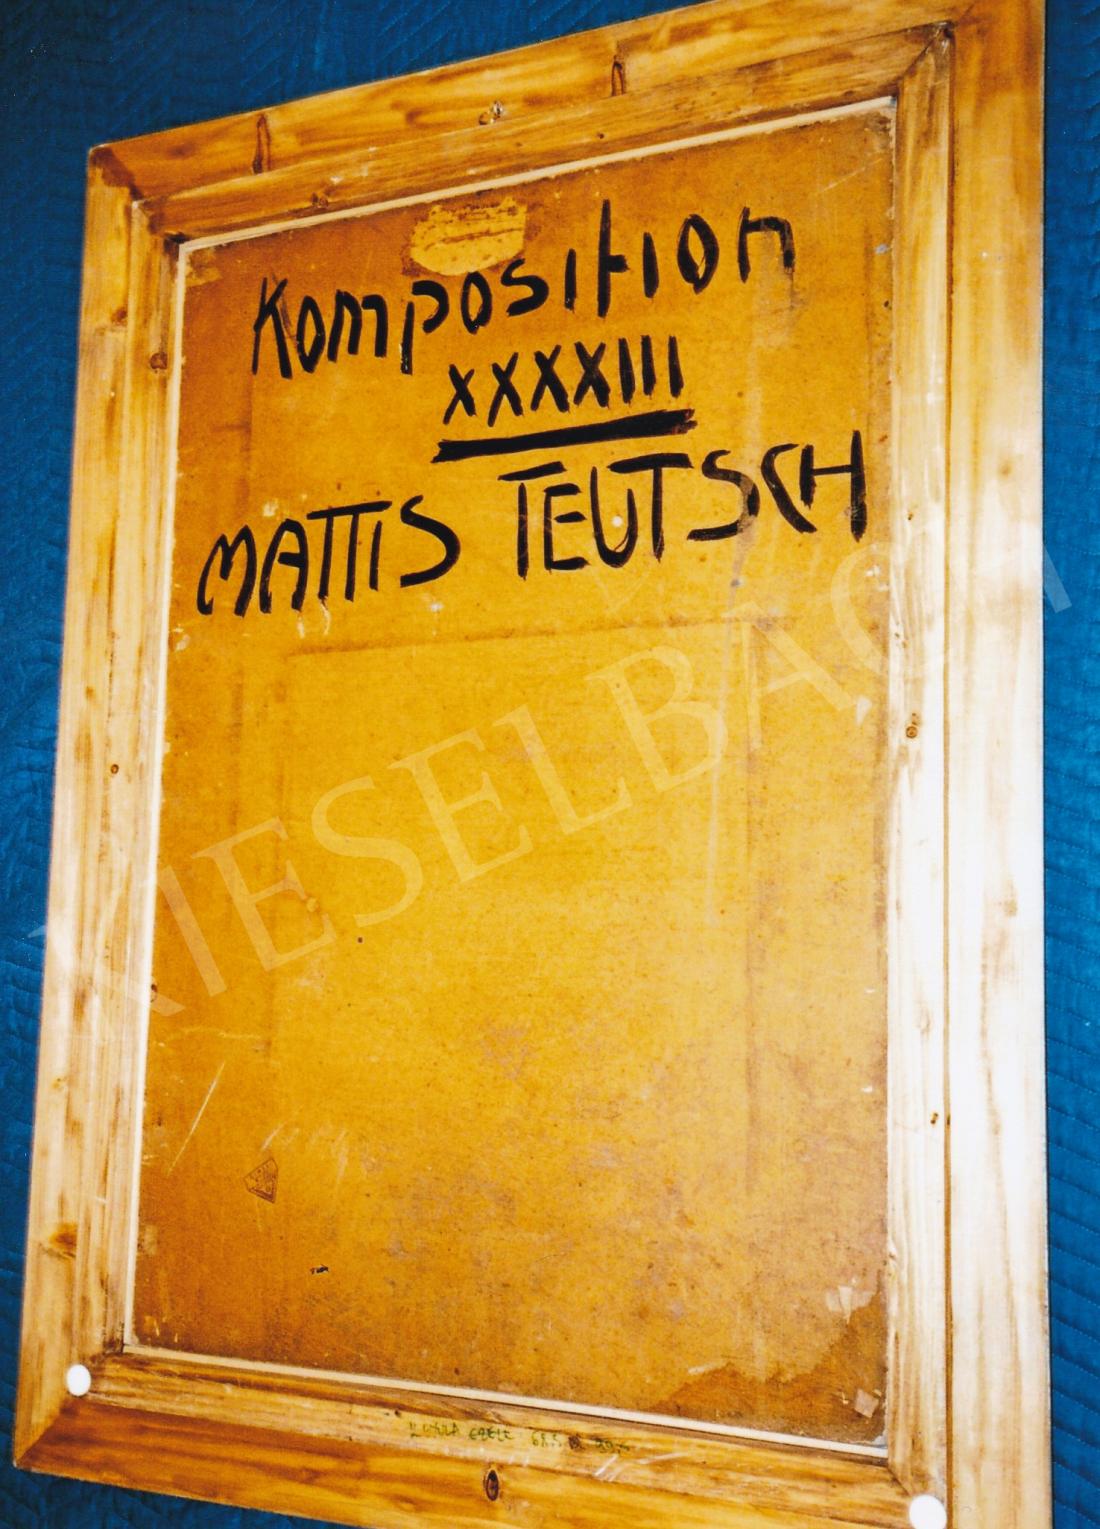 Komposition
XXXXIII
MATTIS TEUTSCH
KIESELBACH